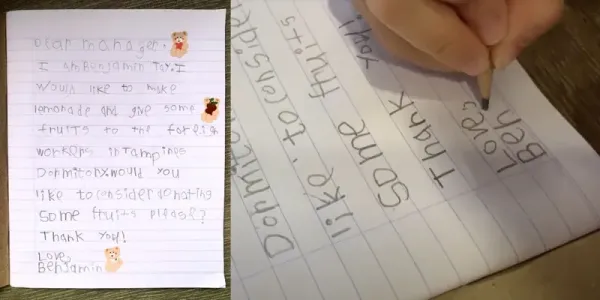 Dear manager,
I am Benjamin Tay. I
would like to make
lemonade and give some
fruits to the foreign
workers in Tampines
Dormitory. Would you
like to consider donating
some fruits please?
Thank you!
Love,
Benjamin
Dormito
like to conside
some fruits
Thank you!
Love,
Ben